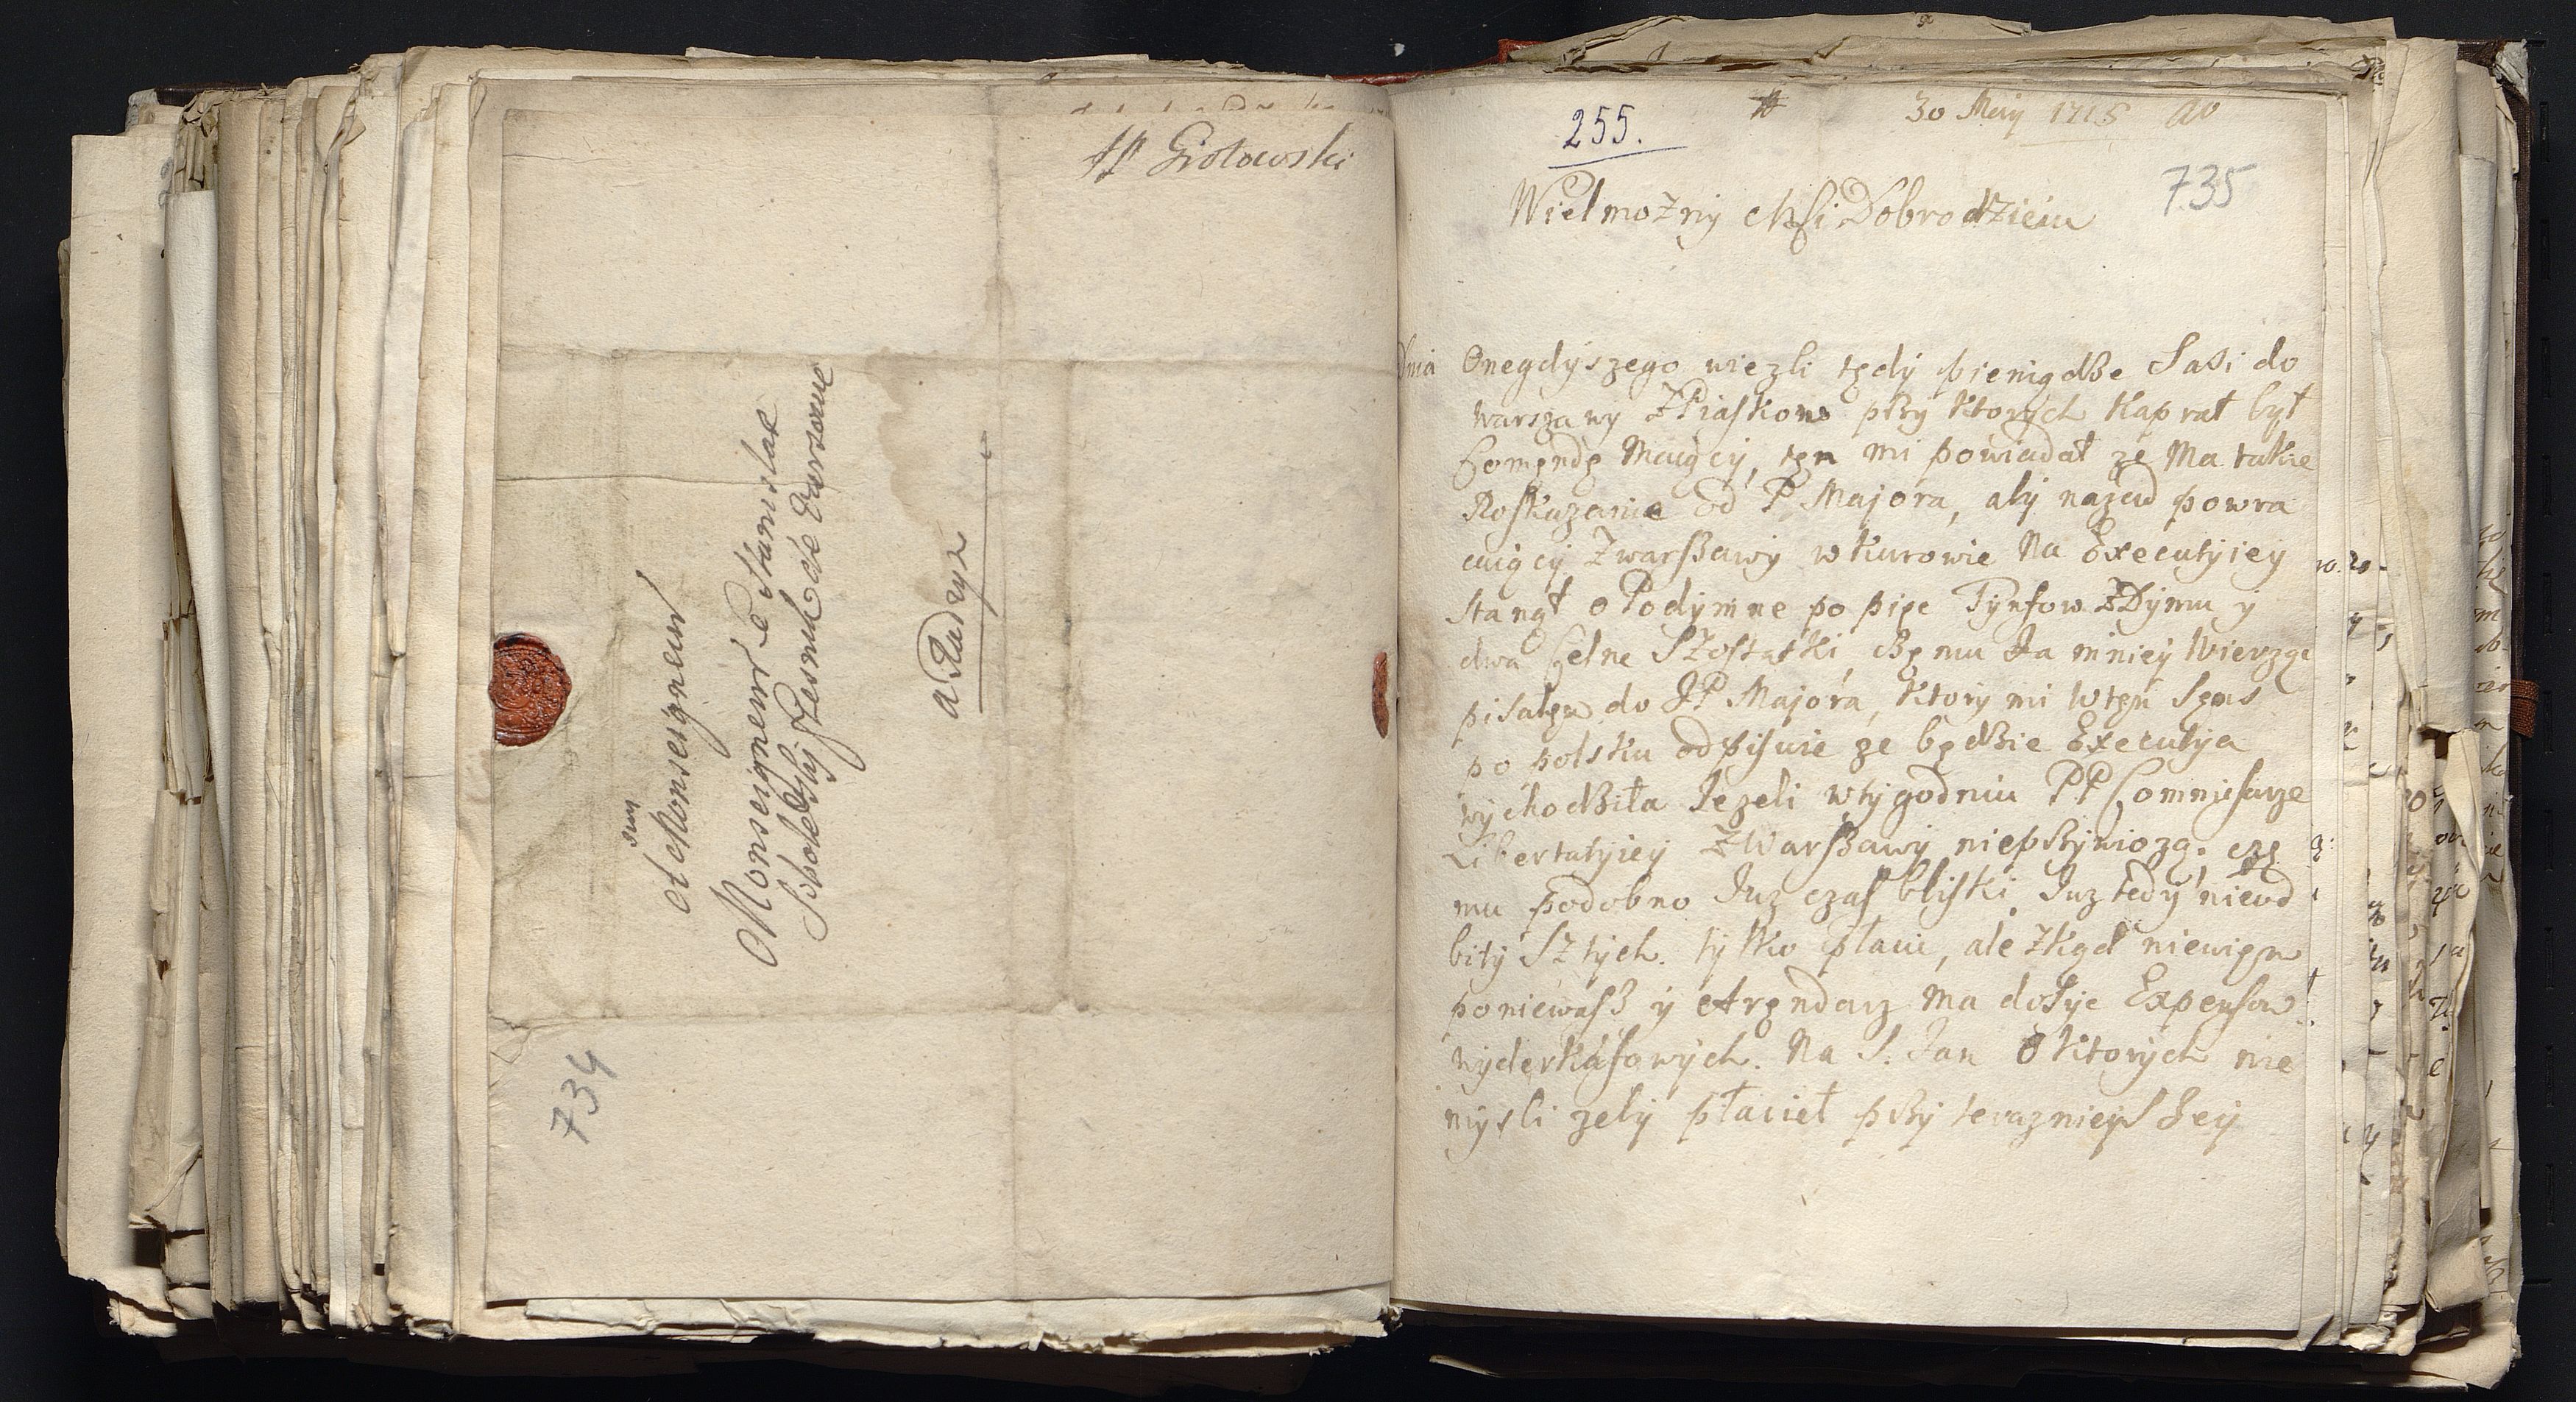 JP Giolowski
A Monseigneur
Monseigneur Stanislae
Czesnik de Varsovie
a Rudzyn
734
255.
30 Maij 1715
735
Wielmozny Msci Dobrodzieiu
dnia Onegdyszego wiezli tędy pieniądze Sasi do
warszawy z Piaskow przy ktorych Kaprał był
Comęndę Maiący, tęn mi powiadał ze Ma takie
Roskazanie od P. Majora, aby nazad powra
caiący z warszawy w Kurowie Na Executyiey
stanął o Podymne po pięc Tynfow z Dymu y
dwa Celne Szostatki, Ze mu Ja mniey Wierzę
pisałęm do JP Majora, Ktory mi w tęn Sęns
po polsku odpisuie ze będzie Executyia
wychodziła Jezeli w tygodniu PP Commissarze
Libertatyiey z Warszawy nieprzywiozą, cze
mu podobno Juz czas bliski. Juz tedy nieod
bity Sztych. tylko płacic, ale zkąd niewięm
poniewasz y Arendarz ma dosyc Expensow
wyderkafowych. Na S. Jan o Ktorych nie
mysli zeby płacieł przy teraznieyszey